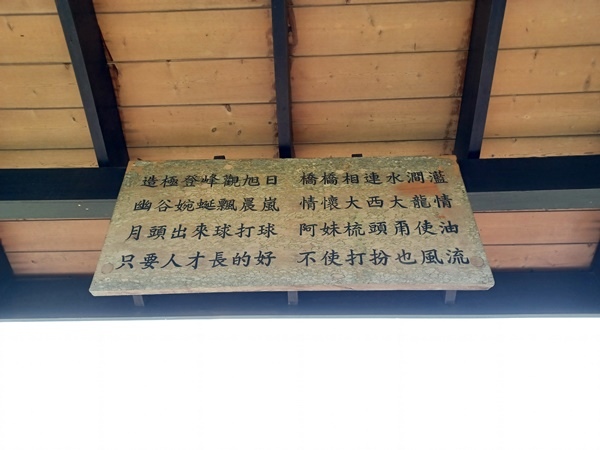 造極登峰觀旭日 橋橋相連水澗濫
幽谷婉蜒飄晨嵐 情懷大西大龍情
月頭出來球打球 阿妹梳頭甮使油
只要人才長的好 不使打扮也風流